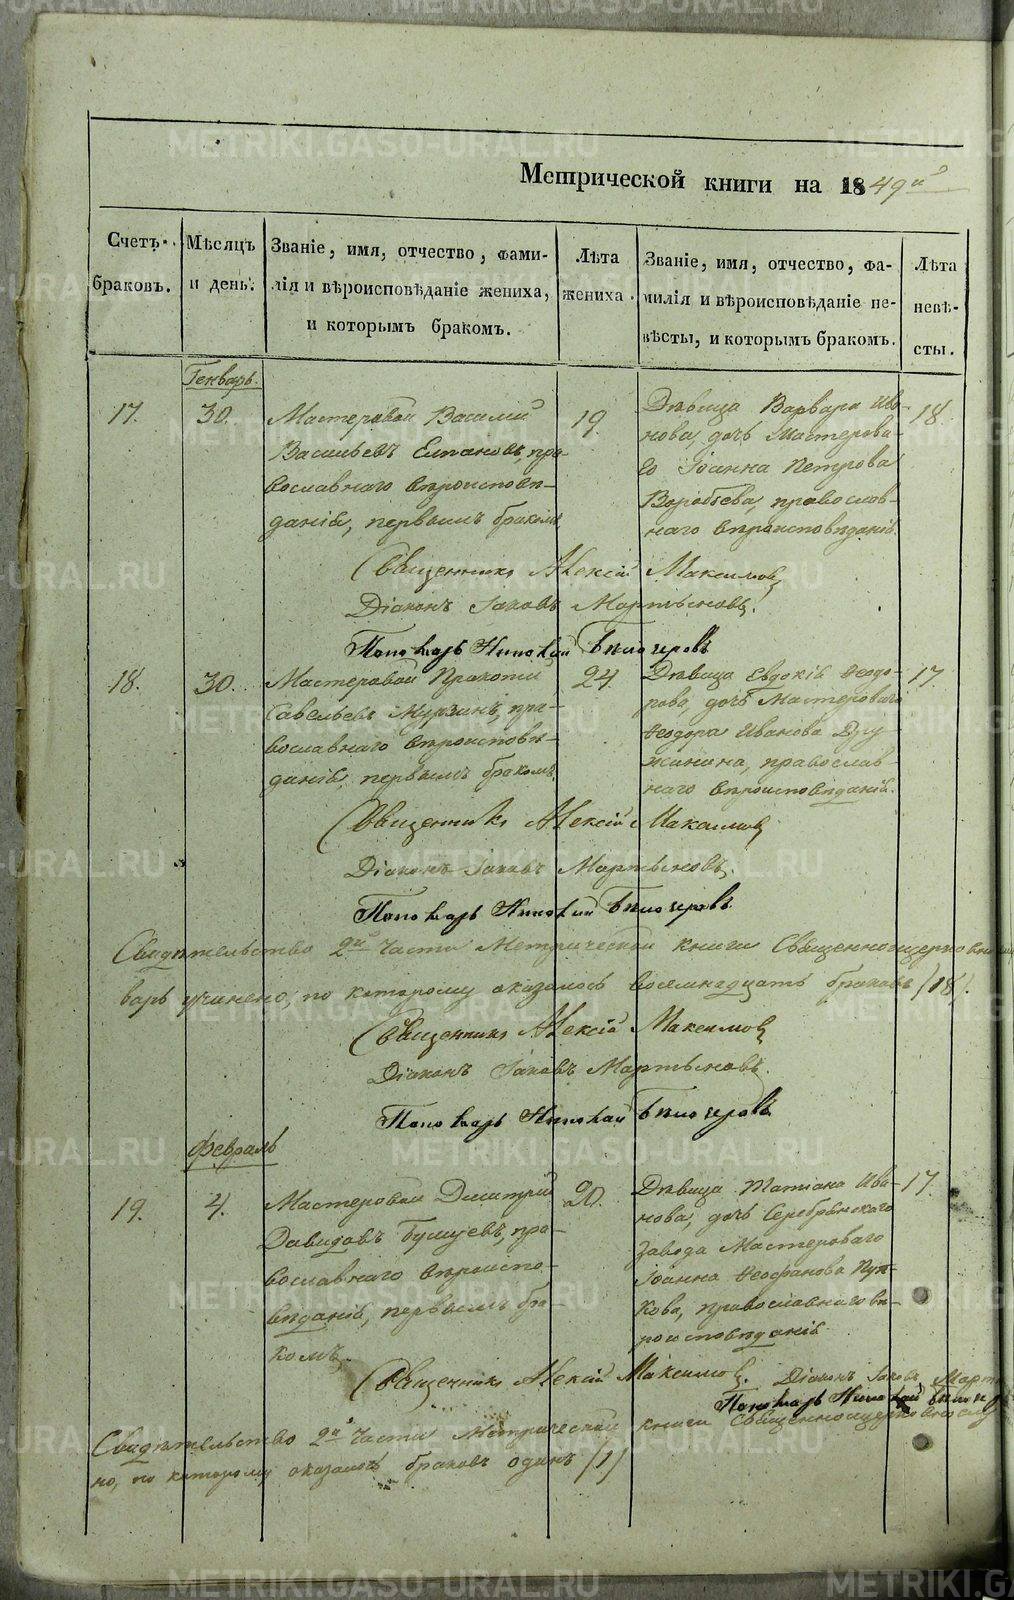 Метрической книги на 1849й
Счетъ браковъ.
Мѣсяцъ и день.
Званіе, имя, отчество, фами-
лія и вѣроисповѣданіе жениха,
и которымъ бракомъ.
Лѣта
жениха.
Званіе, имя, отчество, фа-
милія и вѣроисповѣданіе не-
вѣсты, и которымъ бракомъ.
Лѣта
невѣ-
сты.
Генварь.
17.
30.
Мастеровой Василий
Васильевъ Елтановъ, пра-
вославнаго вѣроисповѣ-
данія, первымъ бракомъ
19.
Дѣвица Варвара Ива-
нова, дочь Мастерова-
го Іоанна Петрова
Воробьева, православ-
наго вѣроисповѣданія.
18.
Священникъ Алексій Максимовъ
Діаконъ Іаковъ Мартыновъ.
Пономарь Николай
18.
30.
Мастеровой Прокопий
Савельевъ Мурзинъ, пра-
вославнаго вѣроисповѣ-
данія, первымъ бракомъ.
24.
Дѣвица Евдокія Ѳеодо-
рова, дочь Мастероваго
Ѳеодора Иванова Дру-
жинина, православ-
наго вѣроисповѣданія.
17.
Священникъ Алексій Максимовъ
Діаконъ Іаковъ Мартыновъ.
Пономарь Николай
Свидѣтельство 2й части Метрической книги
варь учинено, по которому оказалось восемнадцать браковъ /18/.
Священникъ Алексій Максимовъ
Діаконъ Іаковъ Мартыновъ.
Пономарь Николай
Февраль
19.
4.
Мастеровой Димитрий
Давидовъ пра-
вославнаго вѣроиспо-
вѣданія, первымъ бра-
комъ.
20.
Дѣвица Татіана Ива-
нова, дочь Серебрянскаго
Завода Мастероваго
Іоанна Ѳеофанова Пуп-
кова, православнаго вѣ-
роисповѣданія.
17.
Священникъ Алексій Максимовъ. Діаконъ Іаковъ
Пономарь Николай
Свидѣтельство 2й части Метрической книги
но, по которому оказалось браковъ одинъ /1/
METRIKI.GASO-URAL.RU